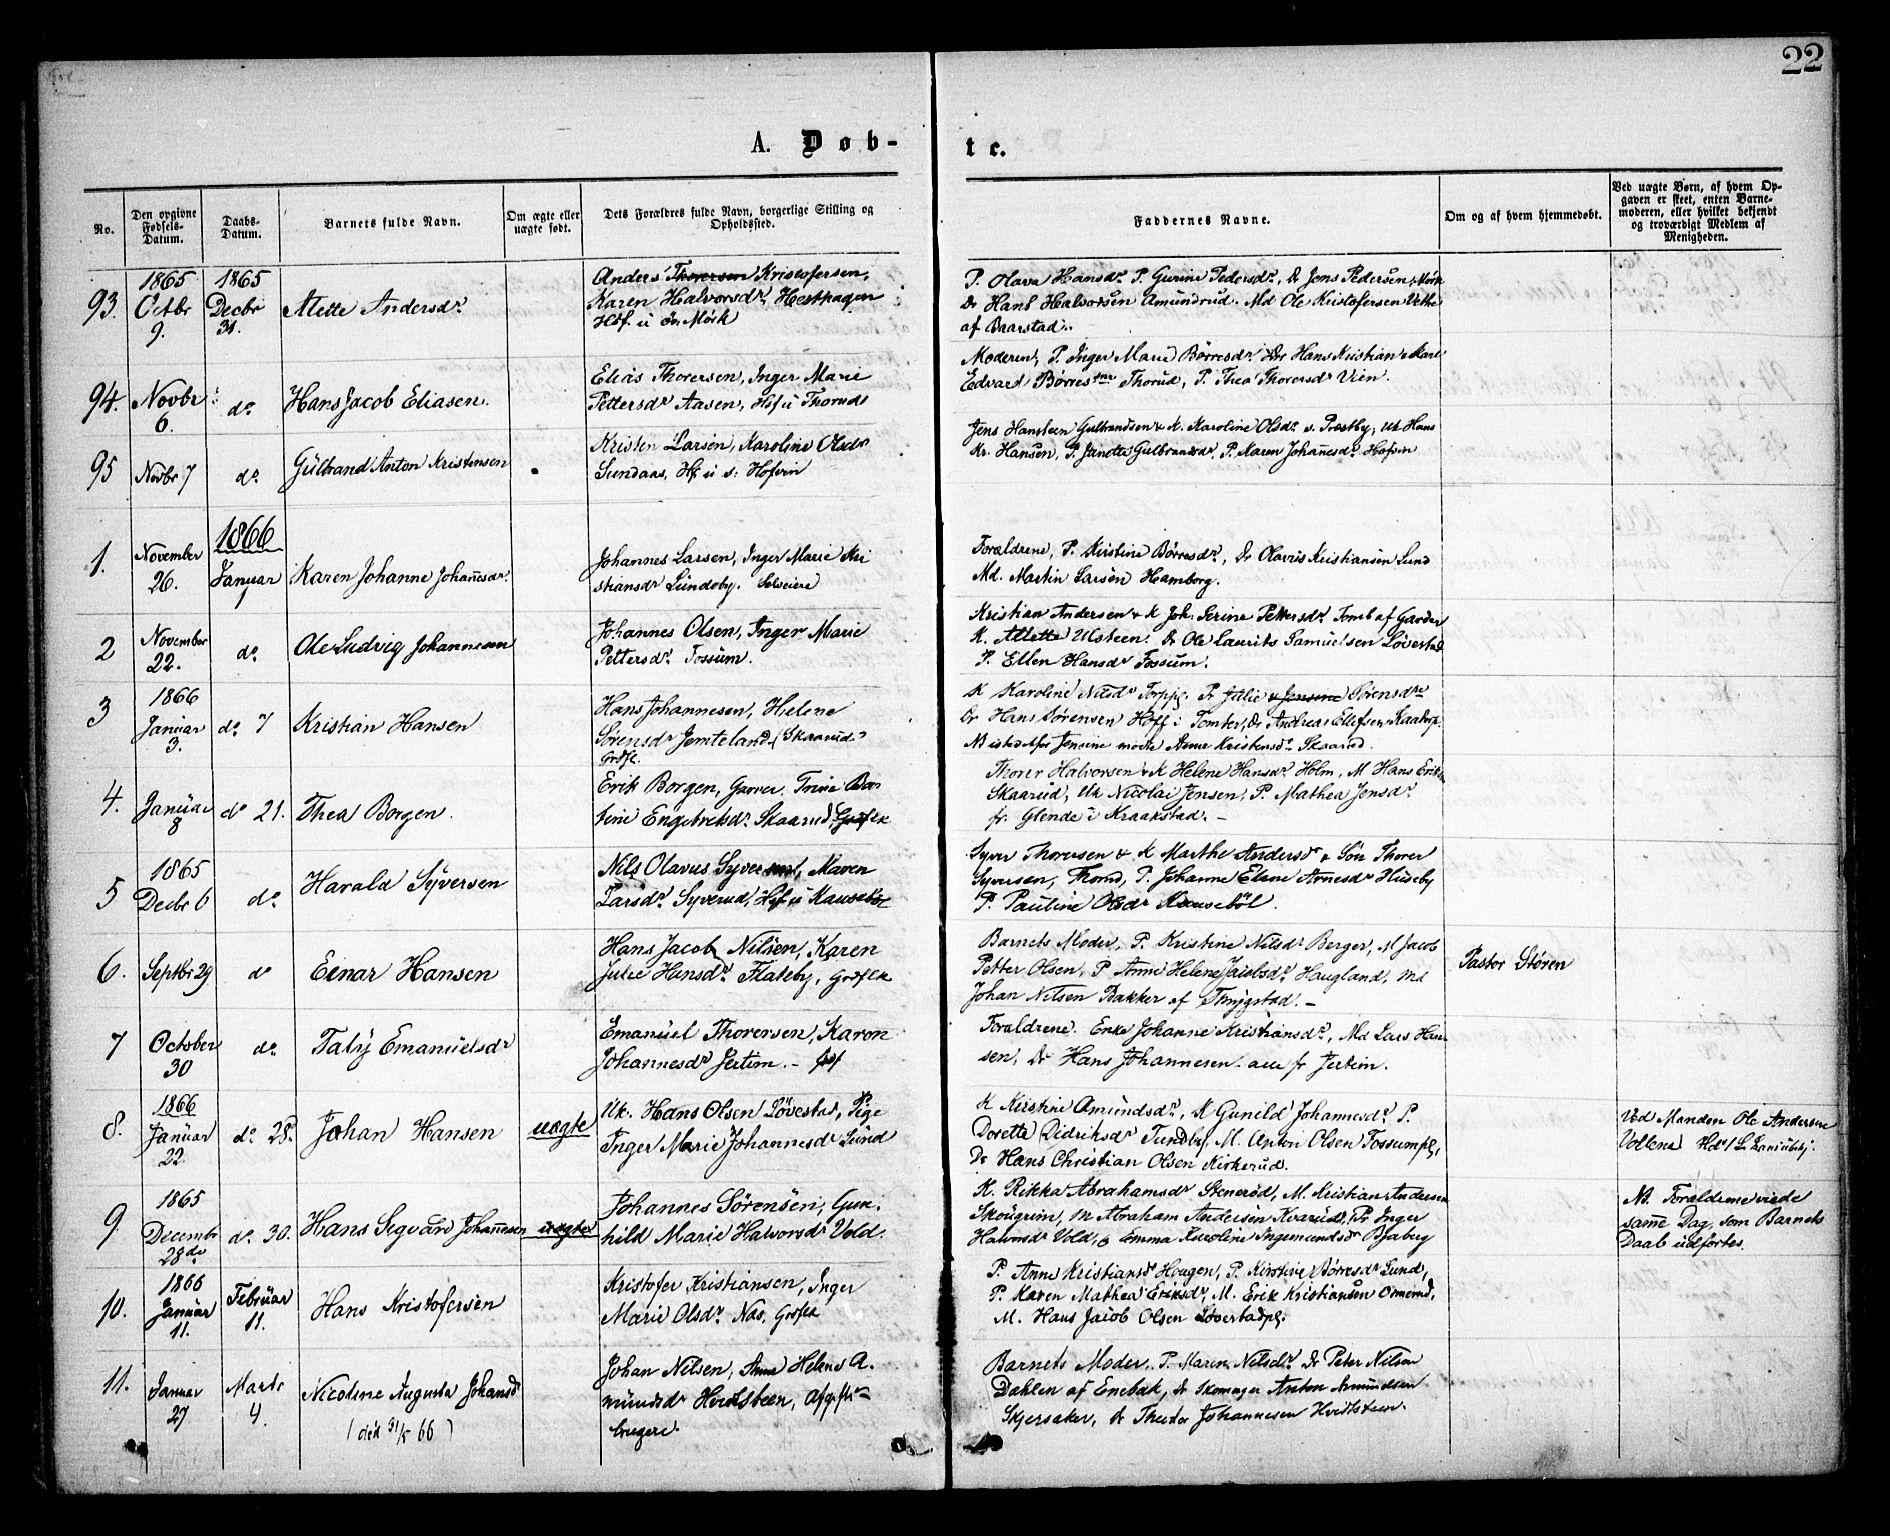 22
A. Døb-
te.
No.
Den opgivne Fødsels-Datum.
Daabs-Datum.
Barnets fulde Navn.
Om ægte eller uægte født.
Dets Forældres fulde Navn, borgerlige Stilling og Opholdssted.
Faddernes Navne.
Om og af hvem hjemmedøbt.
Ved uægte Børn, af hvem Opgaven er skeet, enten Barnemoderen, eller hvilket bekjendt og troværdigt Medlem af Menigheden.
93.
1865
Octbr
9.
1865
Decbr
31.
Alette Andersdr
Anders Thorersen Kristofersen,
Karen Halvorsdr, Hesthagen
Hsf. u ö. Mörk
P. Olava Hansdr. P. Gurine Pedersdr, Dr Jens Pedersen, Mörk
Dr Hans Halvorsen Amundrud. Md Ole Kristofersen
af Baarstad.
94.
Novbr
6.
do
Hans Jacob Eliasen.
Elias Thorersen, Inger Marie
Pettersdr Aasen, Hsf u Thorud
Moderen, P. Inger Marie Börresdr. Dr Hans Kristian
Edvard Börres Thorud, P. Thea Thorersdr Vien.
95
Novbr 7
do.
Gulbrand Anton Kristensen
Kristen Larsen, Karoline Olsdr
Sundaas, Hf u s: Hofvin
Jens Hansteen Gulbrandsen & K. Karoline Olsdr. s. Præstby, Uk Hans
Kr. Hansen, P. Gulbrandsdr, P. Karen Johannesdr. Hofvin
1.
November
26.
1866
Januar
1
Karen Johanne Johannesdr.
Johannes Larsen, Inger Marie Kri
stiansdr Lundeby. Selveiere
Forældrene, P. Kirstine Börresdr, Dr Olavus Kristiansen Lund
Md. Martin Larsen Hamborg.
2
November
22.
do.
Ole Ludvig Johannesen
Johannes Olsen, Inger Marie
Pettersdr. Fossum.
Kristian Andersen & K Joh. Serine Pettersdr. Tomb af Garder
K. Allette Ulsteen. Dr Ole Laurits Samuelsen Løvestad
P. Ellen Hansdr Fossum.
3
1866
Januar
3.
do 7
Kristian Hansen
Hans Johannesen, Helene
Sørensdr Jemteland (Skaarud)
Grdfk.
K Karoline Nilsdr Torppj. Pr Julie & Jensine Sørensdre
Dr Hans Sørensen Hoff i Tomter, Dr Andreas Ellefsen
NB istedetfor Jensine mødte Anne Kristensdr Skaarud.
4.
Januar
8
do 21.
Thea Borgen.
Erik Borgen, Garver, Trine Ba-
tine Engebretsdr. Skaarud. Grdfk
Thorer Halvorsen & K Helene Hansdr. Holm, M Hans
Skaarud, Uk Nicolai Jensen, P. Mathea Jensdr.
fr. Glende i Kraakstad.
5
1865
Decbr 6
do.
Harald Syversen
Nils Olavus Syversen, Maren
Larsdr. Syverud, Hsf u
Syver Thorersen & K Marthe Andersdr & Søn Thorer
Syversen, Thomd, P. Johanne Elene Arnesdr Huseby
P. Pauline Olsdr
6.
Septbr 29
do
Einar Hansen
Hans Jacob Nilsen, Karen
Julie Hansdr. Flateby, Grdfk
Barnets Moder, P. Kristine Nilsdr Berger, M Jacob
Petter Olsen, P Anne Helene Jacobsdr. Haugland, Md
Johan Nilsen Bakker af
Pastor Støren
7
October
30
do.
Taly Emanuelsdr
Emanuel Thorersen, Karen
Johannesdr Jertem.
Forældrene. Enke Johanne Kristiansdr, Md Lars Han-
sen, Dr Hans Johannesen alle fr Jertem.
8.
1866
Januar
22.
do. 28.
Johan Hansen
uægte
Uk. Hans Olsen Løvestad, Pige
Inger Marie Johannesdr Lund
K Kirstine Amundsdr, K Gunild Johannesdr. P.
Dorette Didriksdr Tundby, M. Anton Olsen Fossumpl,
Dr Hans Christian Olsen Kirkerud.
Ved Manden Ole Andersen
Vollene
9
1865
Decembr
28de
do. 30.
Hans Sigvard Johannesen
uægte
Johannes Sørensen, Gun-
hild Marie Halvorsdr Vold.
K. Rikka Abrahamsdr Stenerød, M. Kristian Andersen
Skougrim, M Abraham Andersen Kvarud, Pr Inger
Halvorsdr Vold, & Emma Karoline Ingemundsdr Bjaberg
NB. Forældrene viede
samme Dag, som Barnets
Daab udførtes.
10.
1866
Januar
11.
Februar
11.
Hans Kristofersen
Kristofer Kristiansen, Inger
Marie Olsdr. Næs, Grdfk
P. Anne Kristiansdr Haugen, P. Kirstine Börresdr Lund,
P. Karen Mathea Eriksdr, M. Erik Kristiansen
M. Hans Jacob Olsen Løvestadpl.
11.
Januar
27
Marts
4.
Nicoline Augusta Johansd
(död 31/5 66)
Johan Nilsen, Anne Helene A-
mundsdr Hvidsteen, Afgifts-
brugere.
Barnets Moder, P. Maren Nilsdr. Dr Peter Nilsen
Dahlen af Enebak, Dr Skomager Anton Amundsen
Skjersaker, Dr Theodor Johannesen Hvidsteen.